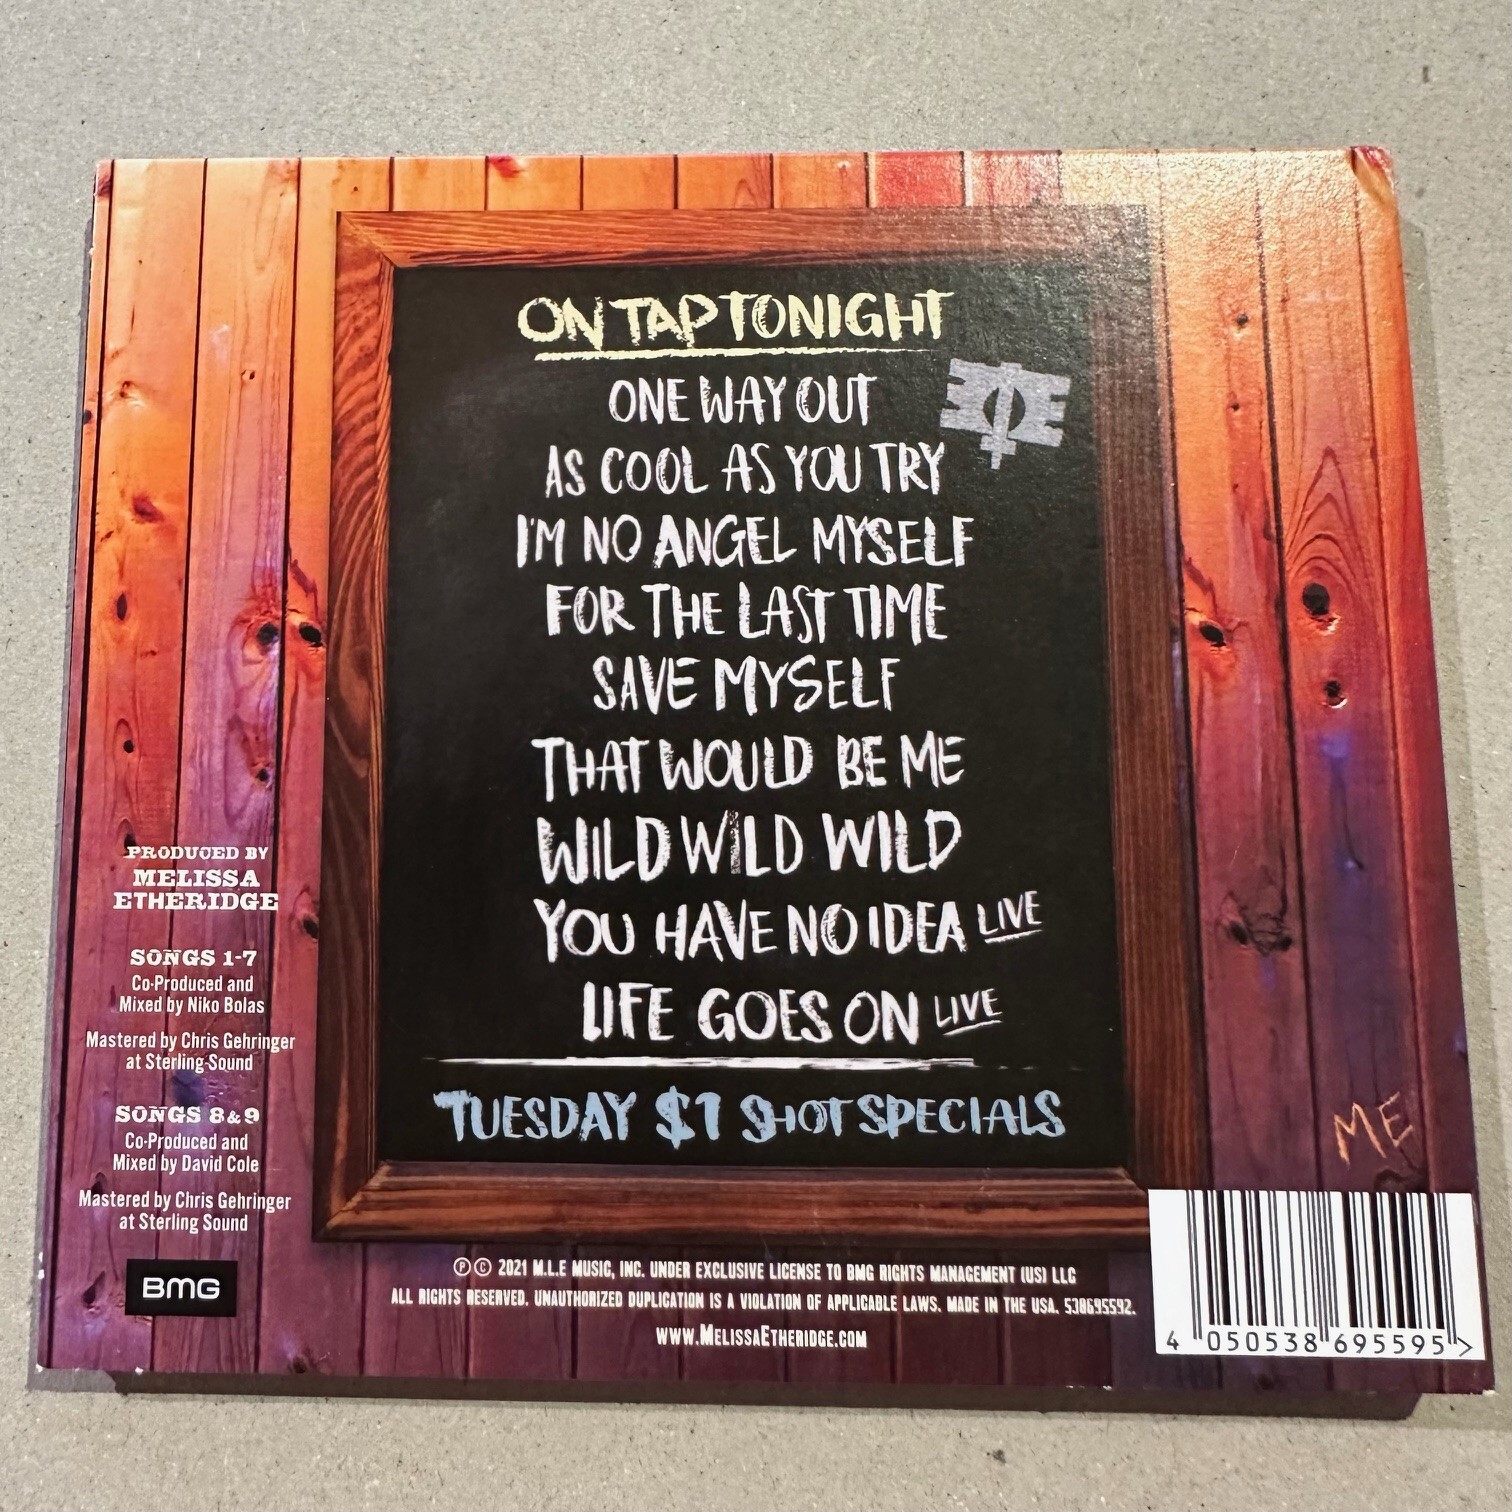 ON TAP TONIGHT
ONE WAY OUT
AS COOL AS YOU TRY
I'M NO ANGEL MYSELF
FOR THE LAST TIME
SAVE MYSELF
THAT WOULD BE ME
WILD WILD WILD
YOU HAVE NO IDEA LIVE
LIFE GOES ON LIVE
TUESDAY $1 SHOT SPECIALS
PRODUCED BY
MELISSA
ETHERIDGE
SONGS 1-7
Co-Produced and
Mixed by Niko Bolas
Mastered by Chris Gehringer
at Sterling Sound
SONGS 8&9
Co-Produced and
Mixed by David Cole
Mastered by Chris Gehringer
at Sterling Sound
BMG
ME
℗ © 2021 M.L.E MUSIC, INC. UNDER EXCLUSIVE LICENSE TO BMG RIGHTS MANAGEMENT (US) LLC
ALL RIGHTS RESERVED. UNAUTHORIZED DUPLICATION IS A VIOLATION OF APPLICABLE LAWS. MADE IN THE USA. 538695592.
WWW.MELISSAETHERIDGE.COM
4 050538 695595 >